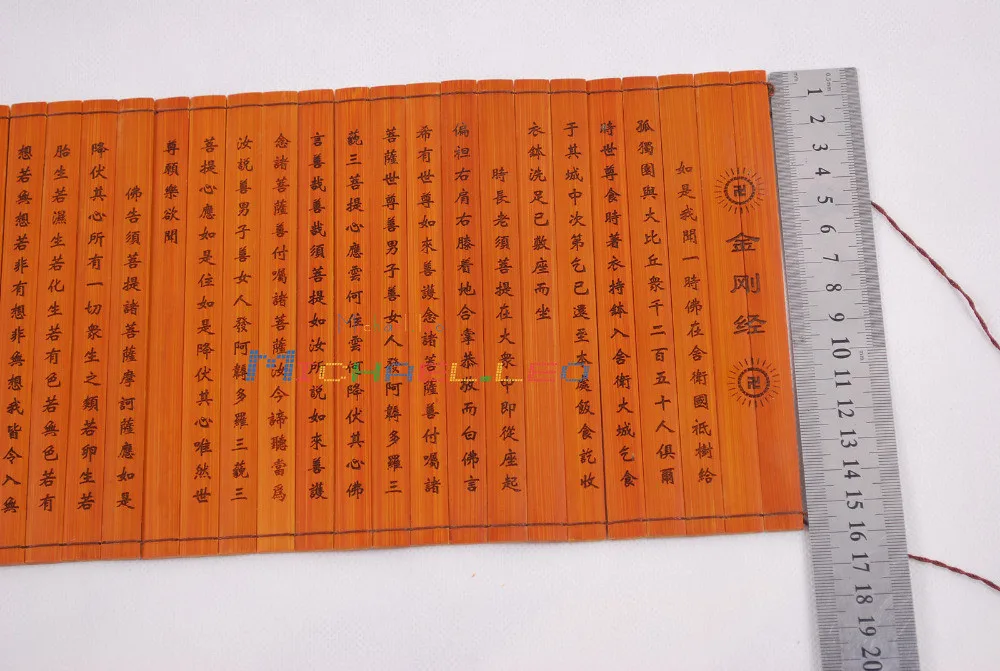 卍
金刚经
卍
如是我聞一時佛在舍衛國祗樹給
孤獨園與大比丘衆千二百五十人俱爾
時世尊食時著衣持鉢入舍衛大城乞食
于其城中次第乞已還至本處飯食訖收
衣鉢洗足已敷座而坐
時長老須菩提在大衆中即從座起
偏袒右肩右膝着地合拿恭敬而白佛言
希有世尊如來善護念諸菩薩善付囑諸
菩薩世尊善男子善女人發阿耨多羅三
藐三菩提心應雲何住雲何降伏其心佛
言善哉善哉須菩提如汝所説如來善護
念諸菩薩善付囑諸菩薩汝今諦聽當爲
汝説善男子善女人發阿耨多羅三藐三
菩提心應如是住如是降伏其心唯然世
尊願樂欲聞
佛告須菩提諸菩薩摩訶薩應如是
降伏其心所有一切衆生之類若卵生若
胎生若濕生若化生若有色若無色若有
想若無想若非有想非無想我皆令入無
1 2 3 4 5 6 7 8 9 10 11 12 13 14 15 16 17 18 19 20
0.5mm
mm
MICHAEL.LEO